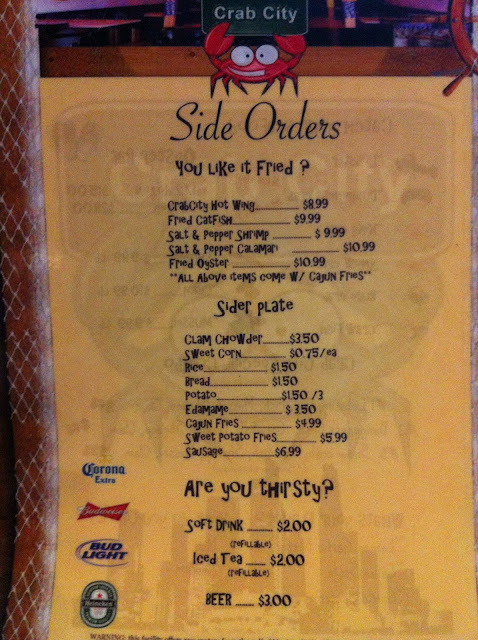 Crab City
Side Orders
You Like it Fried ?
CrabCity Hot Wing.................. $8.99
Fried Catfish.................. $9.99
Salt & Pepper Shrimp ............ $ 9.99
Salt & Pepper Calamari .................. $10.99
Fried Oyster .................. $10.99
**All Above items come w/ Cajun Fries**
Sider Plate
Clam Chowder.........$3.50
Sweet Corn............ $0.75/ea
Rice.................. $1.50
Bread.................. $1.50
Potato..................$1.50 /3
Edamame............... $ 3.50
Cajun Fries ............... $4.99
Sweet Potato Fries............ $5.99
Sausage...............$6.99
Are You Thirsty?
Soft Drink ......... $2.00
(refillable)
Iced Tea ...... $2.00
(refillable)
Beer ...... $3.00
Corona
Extra
Budweiser
BUD
LIGHT
Heineken
WARNING: this facility